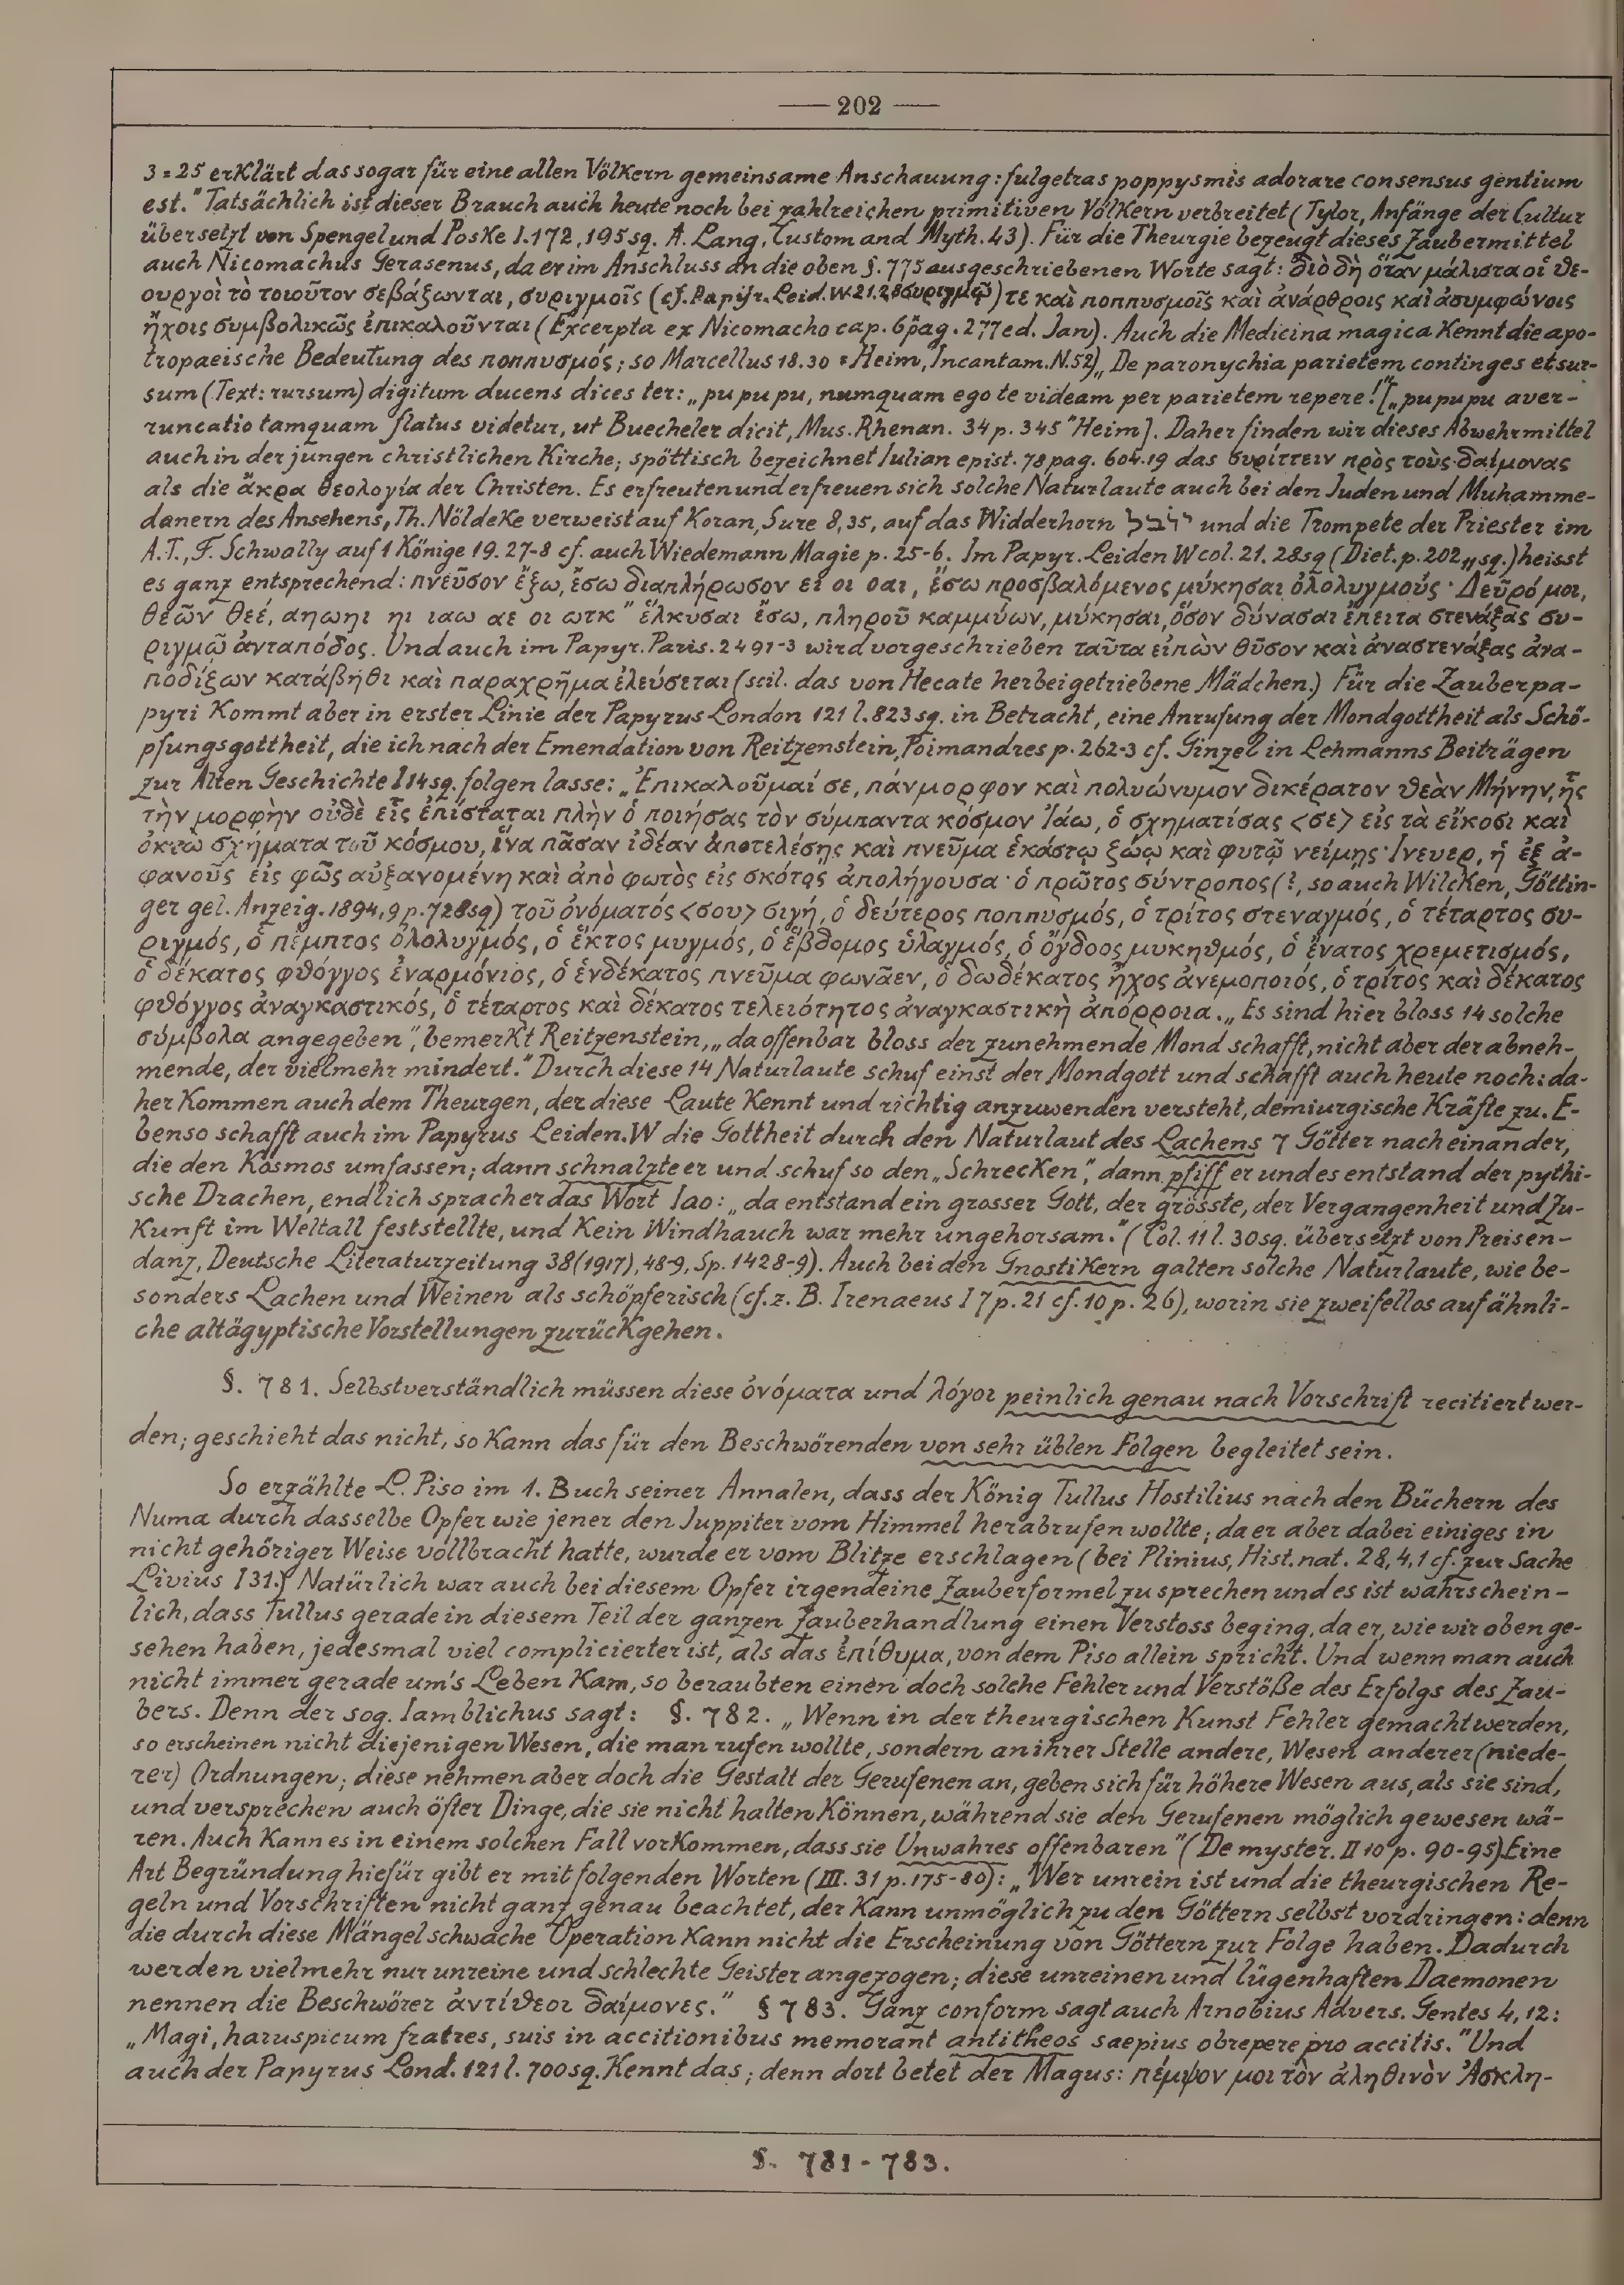 — 202 —
3 = 25 erklärt das sogar für eine allen Völkern gemeinsame Anschauung: fulgetras poppysmis adorare consensus gentium
est." Tatsächlich ist dieser Brauch auch heute noch bei zahlreichen primitiven Völkern verbreitet (Tylor, Anfänge der Cultur
übersetzt von Spengel und Poske I. 172, 195 sq. A. Lang, Custom and Myth. 43). Für die Theurgie bezeugt dieses Zaubermittel
auch Nicomachus Gerasenus, da er im Anschluss an die oben §. 775 ausgeschriebenen Worte sagt: διὸ δὴ ὅταν μάλιστα οἱ θε-
ουργοὶ τὸ τοιοῦτον σεβάζωνται, συριγμοῖς (cf. Papyr. Leid. W 21. 28 συριγμῷ) τε καὶ ποππυσμοῖς καὶ ἀνάρθροις καὶ ἀσυμφώνοις
ἤχοις συμβολικῶς ἐπικαλοῦνται (Excerpta ex Nicomacho cap. 6 pag. 277 ed. Jan). Auch die Medicina magica kennt die apo-
tropaeische Bedeutung des ποππυσμός; so Marcellus 18. 30 = Heim, Incantam. N. 52) „De paronychia parietem continges et sur-
sum (Text: rursum) digitum ducens dices ter: „pu pu pu, numquam ego te videam per parietem repere!" [„pu pu pu aver-
runcatio tamquam flatus videtur, ut Buecheler dicit, Mus. Rhenan. 34 p. 345" Heim]. Daher finden wir dieses Abwehrmittel
auch in der jungen christlichen Kirche; spöttisch bezeichnet Iulian epist. 78 pag. 604. 19 das συρίττειν πρὸς τοὺς δαίμονας
als die ἄκρα θεολογία der Christen. Es erfreuten und erfreuen sich solche Naturlaute auch bei den Juden und Muhamme-
danern des Ansehens, Th. Nöldeke verweist auf Koran, Sure 8, 35, auf das Widderhorn יובל und die Trompete der Priester im
A. T., F. Schwally auf 1 Könige 19. 27-8 cf. auch Wiedemann Magie p. 25-6. Im Papyr. Leiden W col. 21. 28 sq (Diet. p. 202,, sq.) heisst
es ganz entsprechend: πνεῦσον ἔξω, ἔσω διαπλήρωσον ει οι οαι, ἔσω προσβαλόμενος μύκησαι ὀλολυγμούς· Δεῦρό μοι,
θεῶν θεέ, αηωηι ηι ιαω αε οι ωτκ" ἕλκυσαι ἔσω, πληροῦ καμμύων, μύκησαι, ὅσον δύνασαι ἔπειτα στενάξας συ-
ριγμῷ ἀνταπόδος. Und auch im Papyr. Paris. 2491-3 wird vorgeschrieben ταῦτα εἰπὼν θῦσον καὶ ἀναστενάξας ἀνα-
ποδίζων κατάβηθι καὶ παραχρῆμα ἐλεύσεται (scil. das von Hecate herbeigetriebene Mädchen.) Für die Zauberpa-
pyri kommt aber in erster Linie der Papyrus London 121 l. 823 sq. in Betracht, eine Anrufung der Mondgottheit als Schö-
pfungsgottheit, die ich nach der Emendation von Reitzenstein, Poimandres p. 262-3 cf. Ginzel in Lehmanns Beiträgen
zur Alten Geschichte I 14 sq. folgen lasse: „Ἐπικαλοῦμαί σε, πάνμορφον καὶ πολυώνυμον δικέρατον θεὰν Μήνην, ἧς
τὴν μορφὴν οὐδὲ εἷς ἐπίσταται πλὴν ὁ ποιήσας τὸν σύμπαντα κόσμον Ἰάω, ὁ σχηματίσας <σε> εἰς τὰ εἴκοσι καὶ
ὀκτω σχήματα τοῦ κόσμου, ἵνα πᾶσαν ἰδέαν ἀποτελέσῃς καὶ πνεῦμα ἑκάστῳ ζώῳ καὶ φυτῷ νείμῃς· Ινευερ, ἡ ἐξ ἀ-
φανοῦς εἰς φῶς αὐξανομένη καὶ ἀπὸ φωτὸς εἰς σκότος ἀπολήγουσα· ὁ πρῶτος σύντροπος (?, so auch Wilcken, Göttin-
ger gel. Anzeig. 1894, 9 p. 728 sq) τοῦ ὀνόματός <σου> σιγή, ὁ δεύτερος ποππυσμός, ὁ τρίτος στεναγμός, ὁ τέταρτος συ-
ριγμός, ὁ πέμπτος ὀλολυγμός, ὁ ἕκτος μυγμός, ὁ ἕβδομος ὑλαγμός, ὁ ὄγδοος μυκηθμός, ὁ ἔνατος χρεμετισμός,
ὁ δέκατος φθόγγος ἐναρμόνιος, ὁ ἑνδέκατος πνεῦμα φωνᾶεν, ὁ δωδέκατος ἦχος ἀνεμοποιός, ὁ τρίτος καὶ δέκατος
φθόγγος ἀναγκαστικός, ὁ τέταρτος καὶ δέκατος τελειότητος ἀναγκαστικὴ ἀπόρροια. „Es sind hier bloss 14 solche
σύμβολα angegeben", bemerkt Reitzenstein, „da offenbar bloss der zunehmende Mond schafft, nicht aber der abneh-
mende, der vielmehr mindert." Durch diese 14 Naturlaute schuf einst der Mondgott und schafft auch heute noch: da-
her kommen auch dem Theurgen, der diese Laute kennt und richtig anzuwenden versteht, demiurgische Kräfte zu. E-
benso schafft auch im Papyrus Leiden. W die Gottheit durch den Naturlaut des Lachens 7 Götter nacheinander,
die den Kosmos umfassen; dann schnalzte er und schuf so den „Schrecken", dann pfiff er und es entstand der pythi-
sche Drachen, endlich sprach er das Wort Iao: „da entstand ein grosser Gott, der grösste, der Vergangenheit und Zu-
kunft im Weltall feststellte, und kein Windhauch war mehr ungehorsam." (Col. 11 l. 30 sq. übersetzt von Preisen-
danz, Deutsche Literaturzeitung 38 (1917), 48-9, Sp. 1428-9). Auch bei den Gnostikern galten solche Naturlaute, wie be-
sonders Lachen und Weinen als schöpferisch (cf. z. B. Irenaeus I 7 p. 21 cf. 10 p. 26), worin sie zweifellos auf ähnli-
che altägyptische Vorstellungen zurückgehen.
§. 781. Selbstverständlich müssen diese ὀνόματα und λόγοι peinlich genau nach Vorschrift recitiert wer-
den; geschieht das nicht, so kann das für den Beschwörenden von sehr üblen Folgen begleitet sein.
So erzählte L. Piso im 1. Buch seiner Annalen, dass der König Tullus Hostilius nach den Büchern des
Numa durch dasselbe Opfer wie jener den Juppiter vom Himmel herabrufen wollte; da er aber dabei einiges in
nicht gehöriger Weise vollbracht hatte, wurde er vom Blitze erschlagen (bei Plinius, Hist. nat. 28, 4, 1 cf. zur Sache
Livius I 31.) Natürlich war auch bei diesem Opfer irgendeine Zauberformel zu sprechen und es ist wahrschein-
lich, dass Tullus gerade in diesem Teil der ganzen Zauberhandlung einen Verstoss beging, da er, wie wir oben ge-
sehen haben, jedesmal viel complicierter ist, als das ἐπίθυμα, von dem Piso allein spricht. Und wenn man auch
nicht immer gerade um's Leben kam, so beraubten einen doch solche Fehler und Verstöße des Erfolgs des Zau-
bers. Denn der sog. Iamblichus sagt: §. 782. „Wenn in der theurgischen Kunst Fehler gemacht werden,
so erscheinen nicht diejenigen Wesen, die man rufen wollte, sondern an ihrer Stelle andere, Wesen anderer (niede-
rer) Ordnungen; diese nehmen aber doch die Gestalt der Gerufenen an, geben sich für höhere Wesen aus, als sie sind,
und versprechen auch öfter Dinge, die sie nicht halten können, während sie den Gerufenen möglich gewesen wä-
ren. Auch kann es in einem solchen Fall vorkommen, dass sie Unwahres offenbaren" (De myster. II 10 p. 90-95). Eine
Art Begründung hiefür gibt er mit folgenden Worten (III. 31 p. 175-80): „Wer unrein ist und die theurgischen Re-
geln und Vorschriften nicht ganz genau beachtet, der kann unmöglich zu den Göttern selbst vordringen: denn
die durch diese Mängel schwache Operation kann nicht die Erscheinung von Göttern zur Folge haben. Dadurch
werden vielmehr nur unreine und schlechte Geister angezogen; diese unreinen und lügenhaften Daemonen
nennen die Beschwörer ἀντίθεοι δαίμονες." § 783. Ganz conform sagt auch Arnobius Advers. Gentes 4, 12:
„Magi, haruspicum fratres, suis in accitionibus memorant antitheos saepius obrepere pro accitis." Und
auch der Papyrus Lond. 121 l. 700 sq. kennt das; denn dort betet der Magus: πέμψον μοι τὸν ἀληθινὸν Ἀσκλη-
§. 781 - 783.